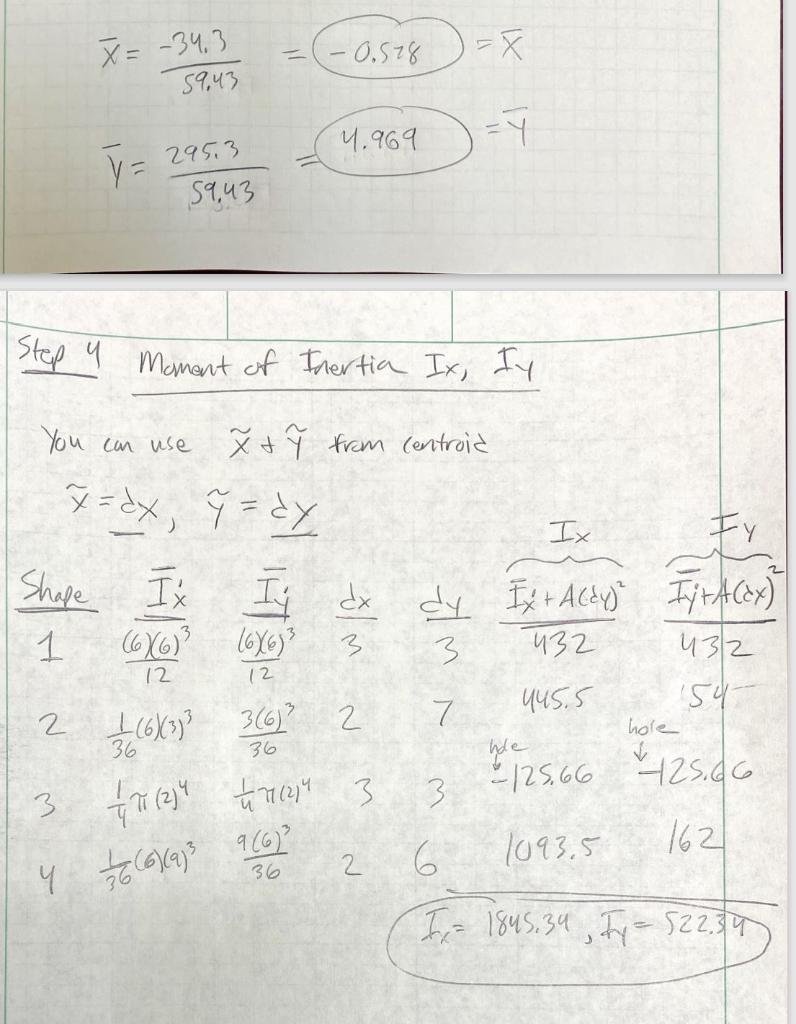 X̄ = -34.3 / 59.43 = -0.578 = X̄
Ȳ = 295.3 / 59.43 = 4.969 = Ȳ
Step 4 Moment of Inertia Ix, Iy
You can use x̃ + ỹ from centroid
x̃ = dx, ỹ = dy
Ix Iy
Shape Īx' Īy' dx dy Īx' + A(dy)² Īy' + A(dx)²
1 (6)(6)³/12 (6)(6)³/12 3 3 432 432
2 1/36 (6)(3)³ 3(6)³/36 2 7 445.5 54
hole hole
3 1/4 π(2)⁴ 1/4 π(2)⁴ 3 3 -125.66 -125.66
4 1/36 (6)(9)³ 9(6)³/36 2 6 1093.5 162
Ix = 1845.34, Iy = 522.34